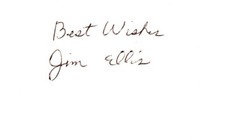 Best Wishes
Jim Ellis